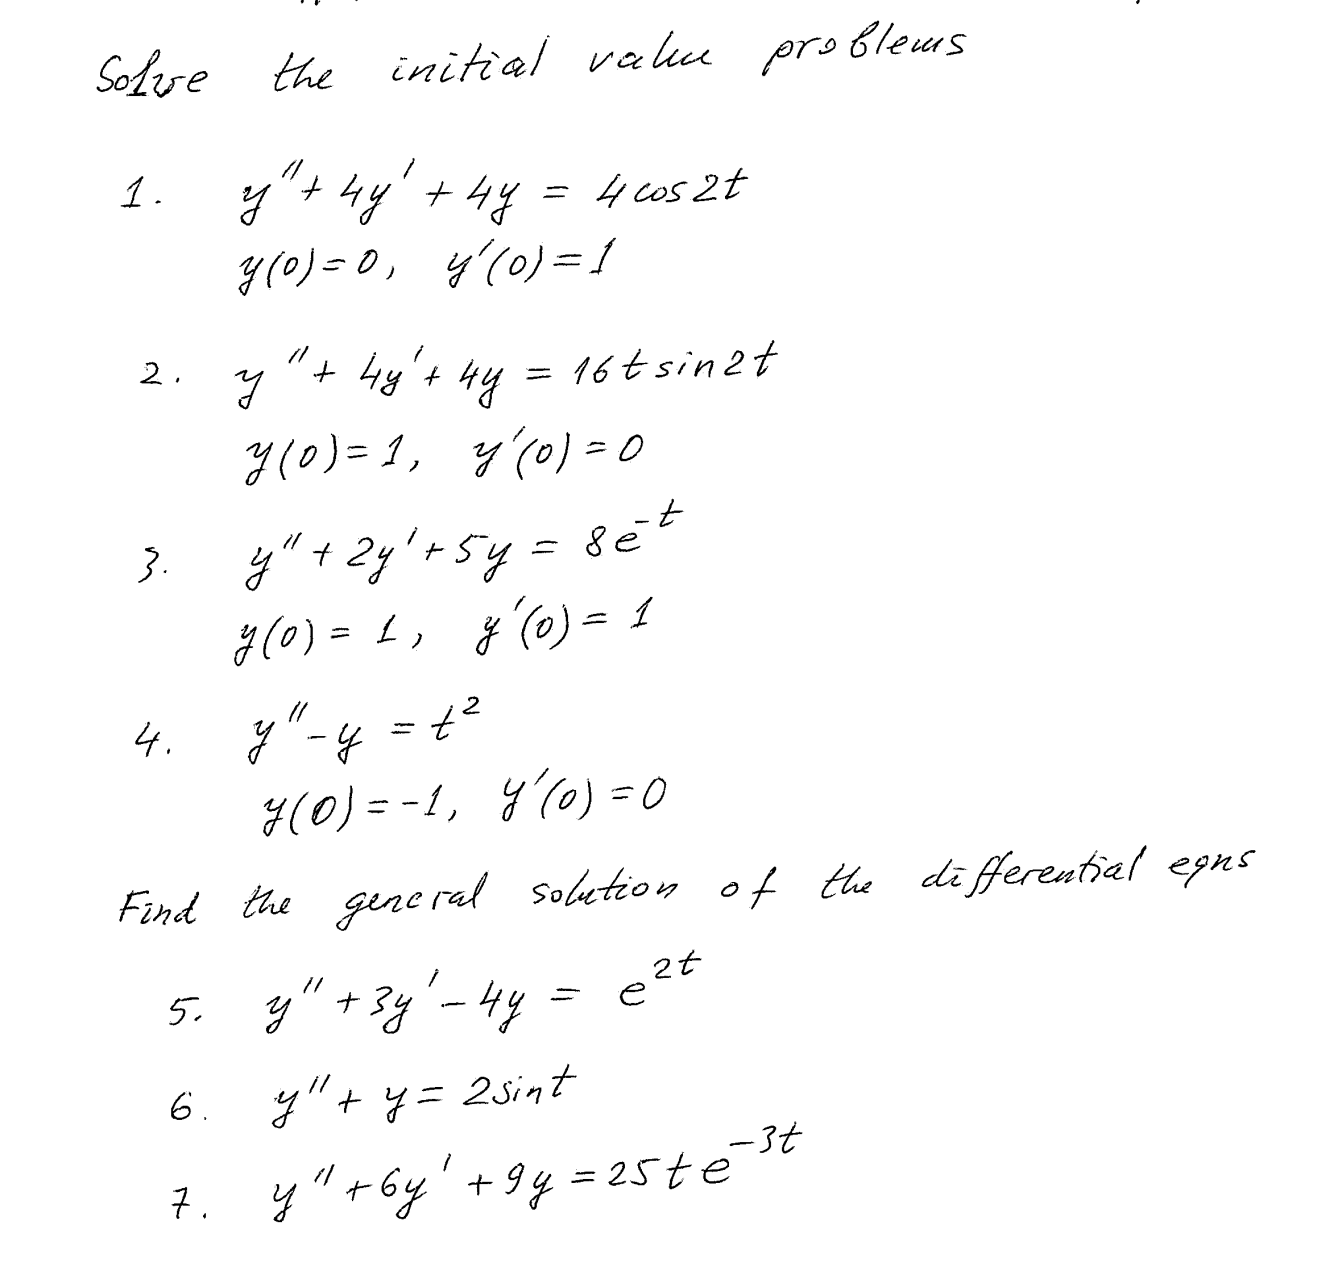 Solve the initial value problems
1. y" + 4y' + 4y = 4 cos 2t
y(0) = 0, y'(0) = 1
2. y" + 4y' + 4y = 16 t sin 2t
y(0) = 1, y'(0) = 0
3. y" + 2y' + 5y = 8 e^-t
y(0) = 1, y'(0) = 1
4. y" - y = t²
y(0) = -1, y'(0) = 0
Find the general solution of the differential eqns
5. y" + 3y' - 4y = e^2t
6. y" + y = 2 sin t
7. y" + 6y' + 9y = 25 t e^-3t